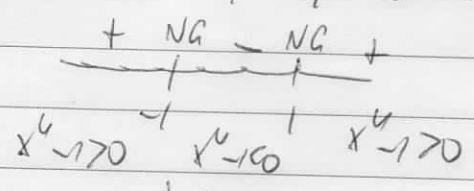 + NG − NG +
-1 1
x⁴-1>0 x⁴-1<0 x⁴-1>0